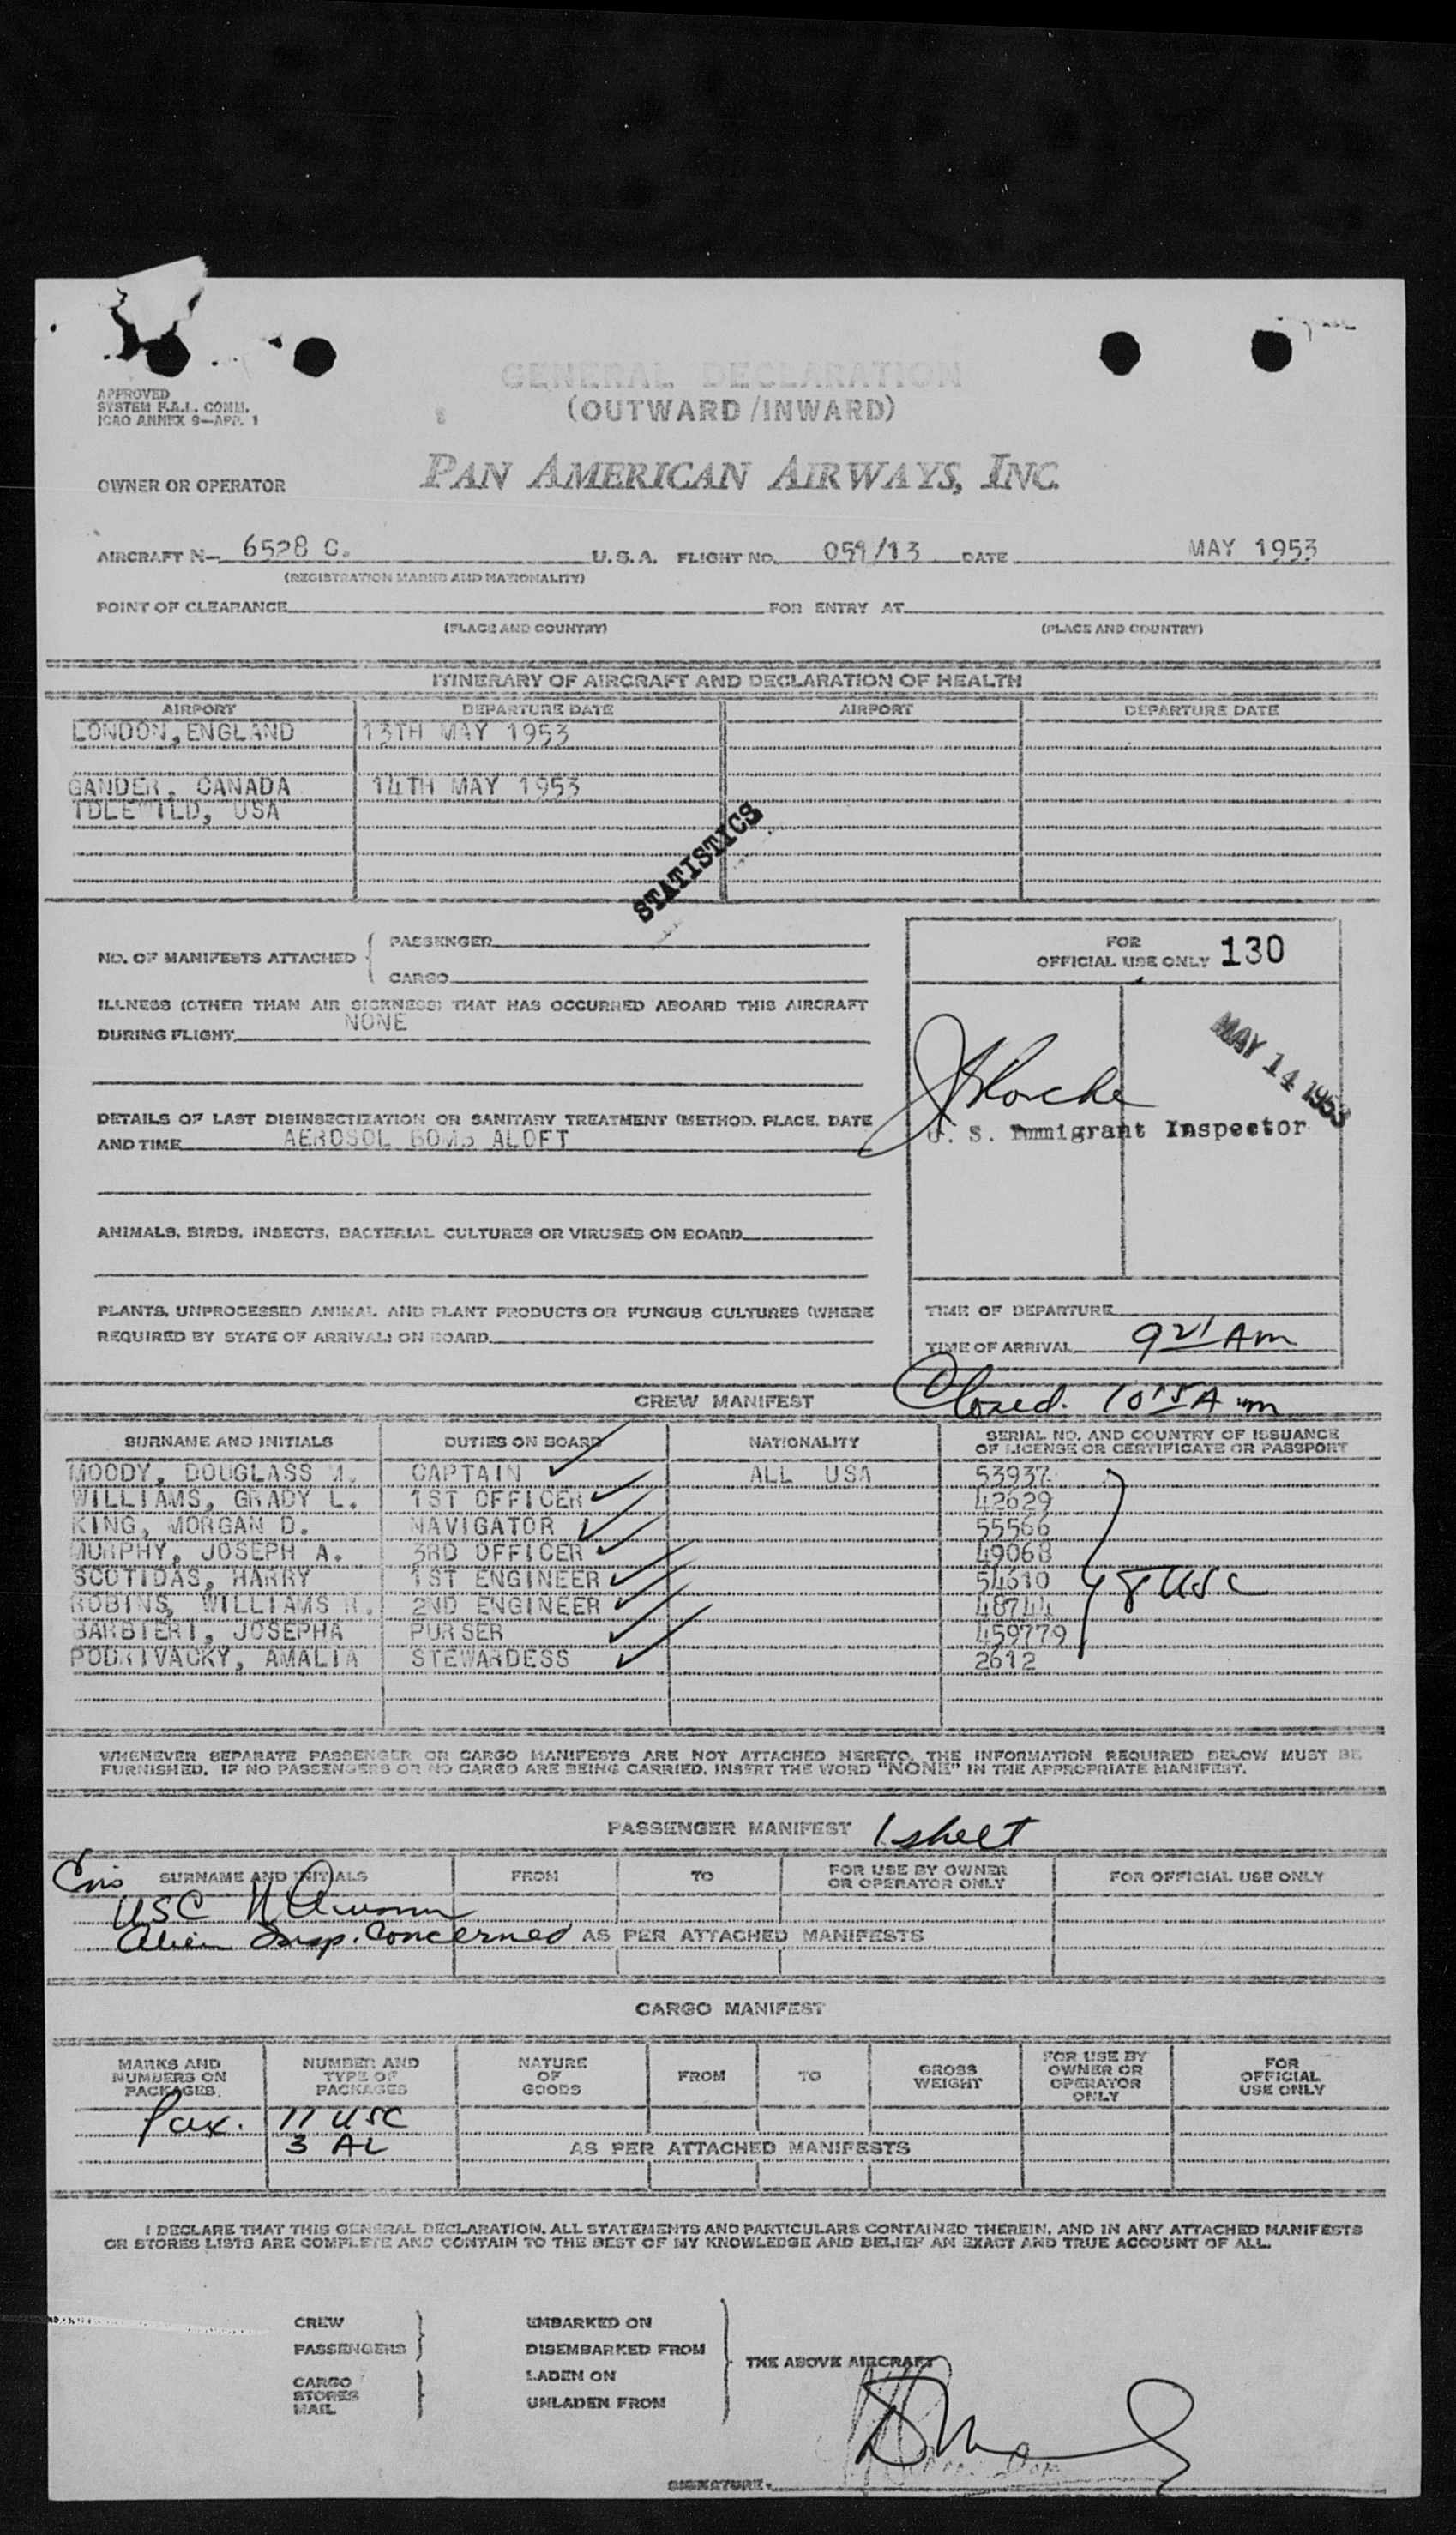 GENERAL DECLARATION
(OUTWARD/INWARD)
APPROVED
SYSTEM F.A.L. COMM.
ICAO ANNEX 9—APP. 1
OWNER OR OPERATOR PAN AMERICAN AIRWAYS, INC.
AIRCRAFT N— 6528 C. U.S.A. FLIGHT NO. 059/13 DATE MAY 1953
(REGISTRATION MARKS AND NATIONALITY)
POINT OF CLEARANCE FOR ENTRY AT
(PLACE AND COUNTRY) (PLACE AND COUNTRY)
ITINERARY OF AIRCRAFT AND DECLARATION OF HEALTH
AIRPORT DEPARTURE DATE AIRPORT DEPARTURE DATE
LONDON, ENGLAND 13TH MAY 1953
GANDER, CANADA 14TH MAY 1953
IDLEWILD, USA
STATISTICS
NO. OF MANIFESTS ATTACHED { PASSENGER
CARGO
FOR
OFFICIAL USE ONLY 130
ILLNESS (OTHER THAN AIR SICKNESS) THAT HAS OCCURRED ABOARD THIS AIRCRAFT
DURING FLIGHT NONE
MAY 14 1953
DETAILS OF LAST DISINSECTIZATION OR SANITARY TREATMENT (METHOD. PLACE. DATE
AND TIME AEROSOL BOMB ALOFT
U. S. Immigrant Inspector
ANIMALS, BIRDS, INSECTS, BACTERIAL CULTURES OR VIRUSES ON BOARD
PLANTS, UNPROCESSED ANIMAL AND PLANT PRODUCTS OR FUNGUS CULTURES (WHERE
REQUIRED BY STATE OF ARRIVAL) ON BOARD
TIME OF DEPARTURE
TIME OF ARRIVAL 921 AM
Closed. 1015 A m
CREW MANIFEST
SURNAME AND INITIALS DUTIES ON BOARD NATIONALITY SERIAL NO. AND COUNTRY OF ISSUANCE
OF LICENSE OR CERTIFICATE OR PASSPORT
MOODY, DOUGLASS M. CAPTAIN ALL USA 53937
WILLIAMS, GRADY L. 1ST OFFICER 42629
KING, MORGAN D. NAVIGATOR 55566
MURPHY, JOSEPH A. 3RD OFFICER 49068
SCOTIDAS, HARRY 1ST ENGINEER 54610 8 USC
ROBINS, WILLIAMS R. 2ND ENGINEER 48744
BARBIERI, JOSEPHA PURSER 459779
PODRIVACKY, AMALIA STEWARDESS 2612
WHENEVER SEPARATE PASSENGER OR CARGO MANIFESTS ARE NOT ATTACHED HERETO, THE INFORMATION REQUIRED BELOW MUST BE
FURNISHED. IF NO PASSENGERS OR NO CARGO ARE BEING CARRIED, INSERT THE WORD "NONE" IN THE APPROPRIATE MANIFEST.
PASSENGER MANIFEST 1 sheet
SURNAME AND INITIALS FROM TO FOR USE BY OWNER
OR OPERATOR ONLY FOR OFFICIAL USE ONLY
USC
Alien Insp. Concerned AS PER ATTACHED MANIFESTS
CARGO MANIFEST
MARKS AND
NUMBERS ON
PACKAGES. NUMBER AND
TYPE OF
PACKAGES NATURE
OF
GOODS FROM TO GROSS
WEIGHT FOR USE BY
OWNER OR
OPERATOR
ONLY FOR
OFFICIAL
USE ONLY
Pax. 11 USC
3 AL AS PER ATTACHED MANIFESTS
I DECLARE THAT THIS GENERAL DECLARATION, ALL STATEMENTS AND PARTICULARS CONTAINED THEREIN, AND IN ANY ATTACHED MANIFESTS
OR STORES LISTS ARE COMPLETE AND CONTAIN TO THE BEST OF MY KNOWLEDGE AND BELIEF AN EXACT AND TRUE ACCOUNT OF ALL.
CREW EMBARKED ON
PASSENGERS DISEMBARKED FROM THE ABOVE AIRCRAFT
CARGO LADEN ON
STORES
MAIL UNLADEN FROM
SIGNATURE